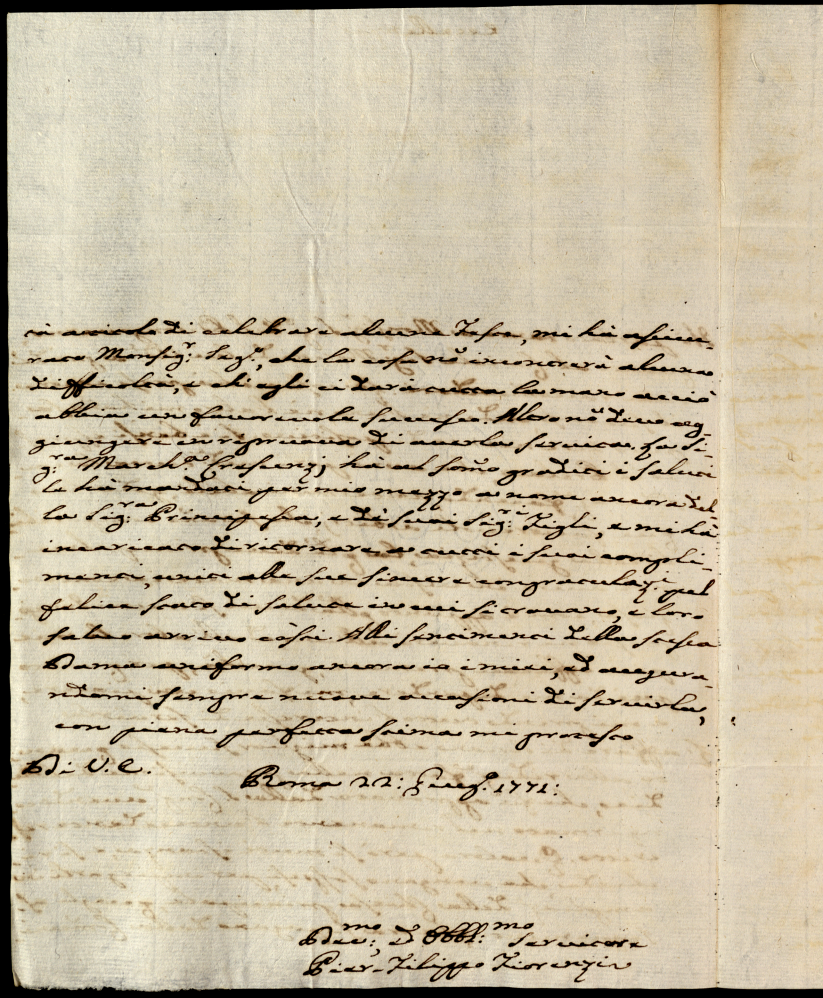 tà a titolo di celebrare alcuna Festa, mi hà assicu-
rato Monsig.r Seg.o, che la cosa nõ incontrerà alcuna
difficoltà, e ch'egli ci darà tutta la mano acciò
abbia un favorevole successo. Altro nõ devo ag-
giungere in riprova di averla servita. La Si-
g.ra March.a Crescenzj hà al som̃o graditi i saluti
le hà mandati per mio mezzo a nome ancora del
la Sig.ra Principessa, e dè suoi Sig.ri Figli, e mi hà
incaricato di ritornare a tutti i suoi compli-
menti, uniti alle sue sincere congratulaz.i pel
felice stato di salute in cui si trovano, e loro
salvo arrivo costì. Alli sentimenti della stessa
Dama uniformo ancora io i miei, ed augura-
ndomi sempre nuove occasioni di servirla,
con piena perfetta stima mi protesto
Di V. E.
Roma 22: Giug.o 1771:
Dev.mo: ed Obbl:mo Servitore
Pier-Filippo Fiorenzi